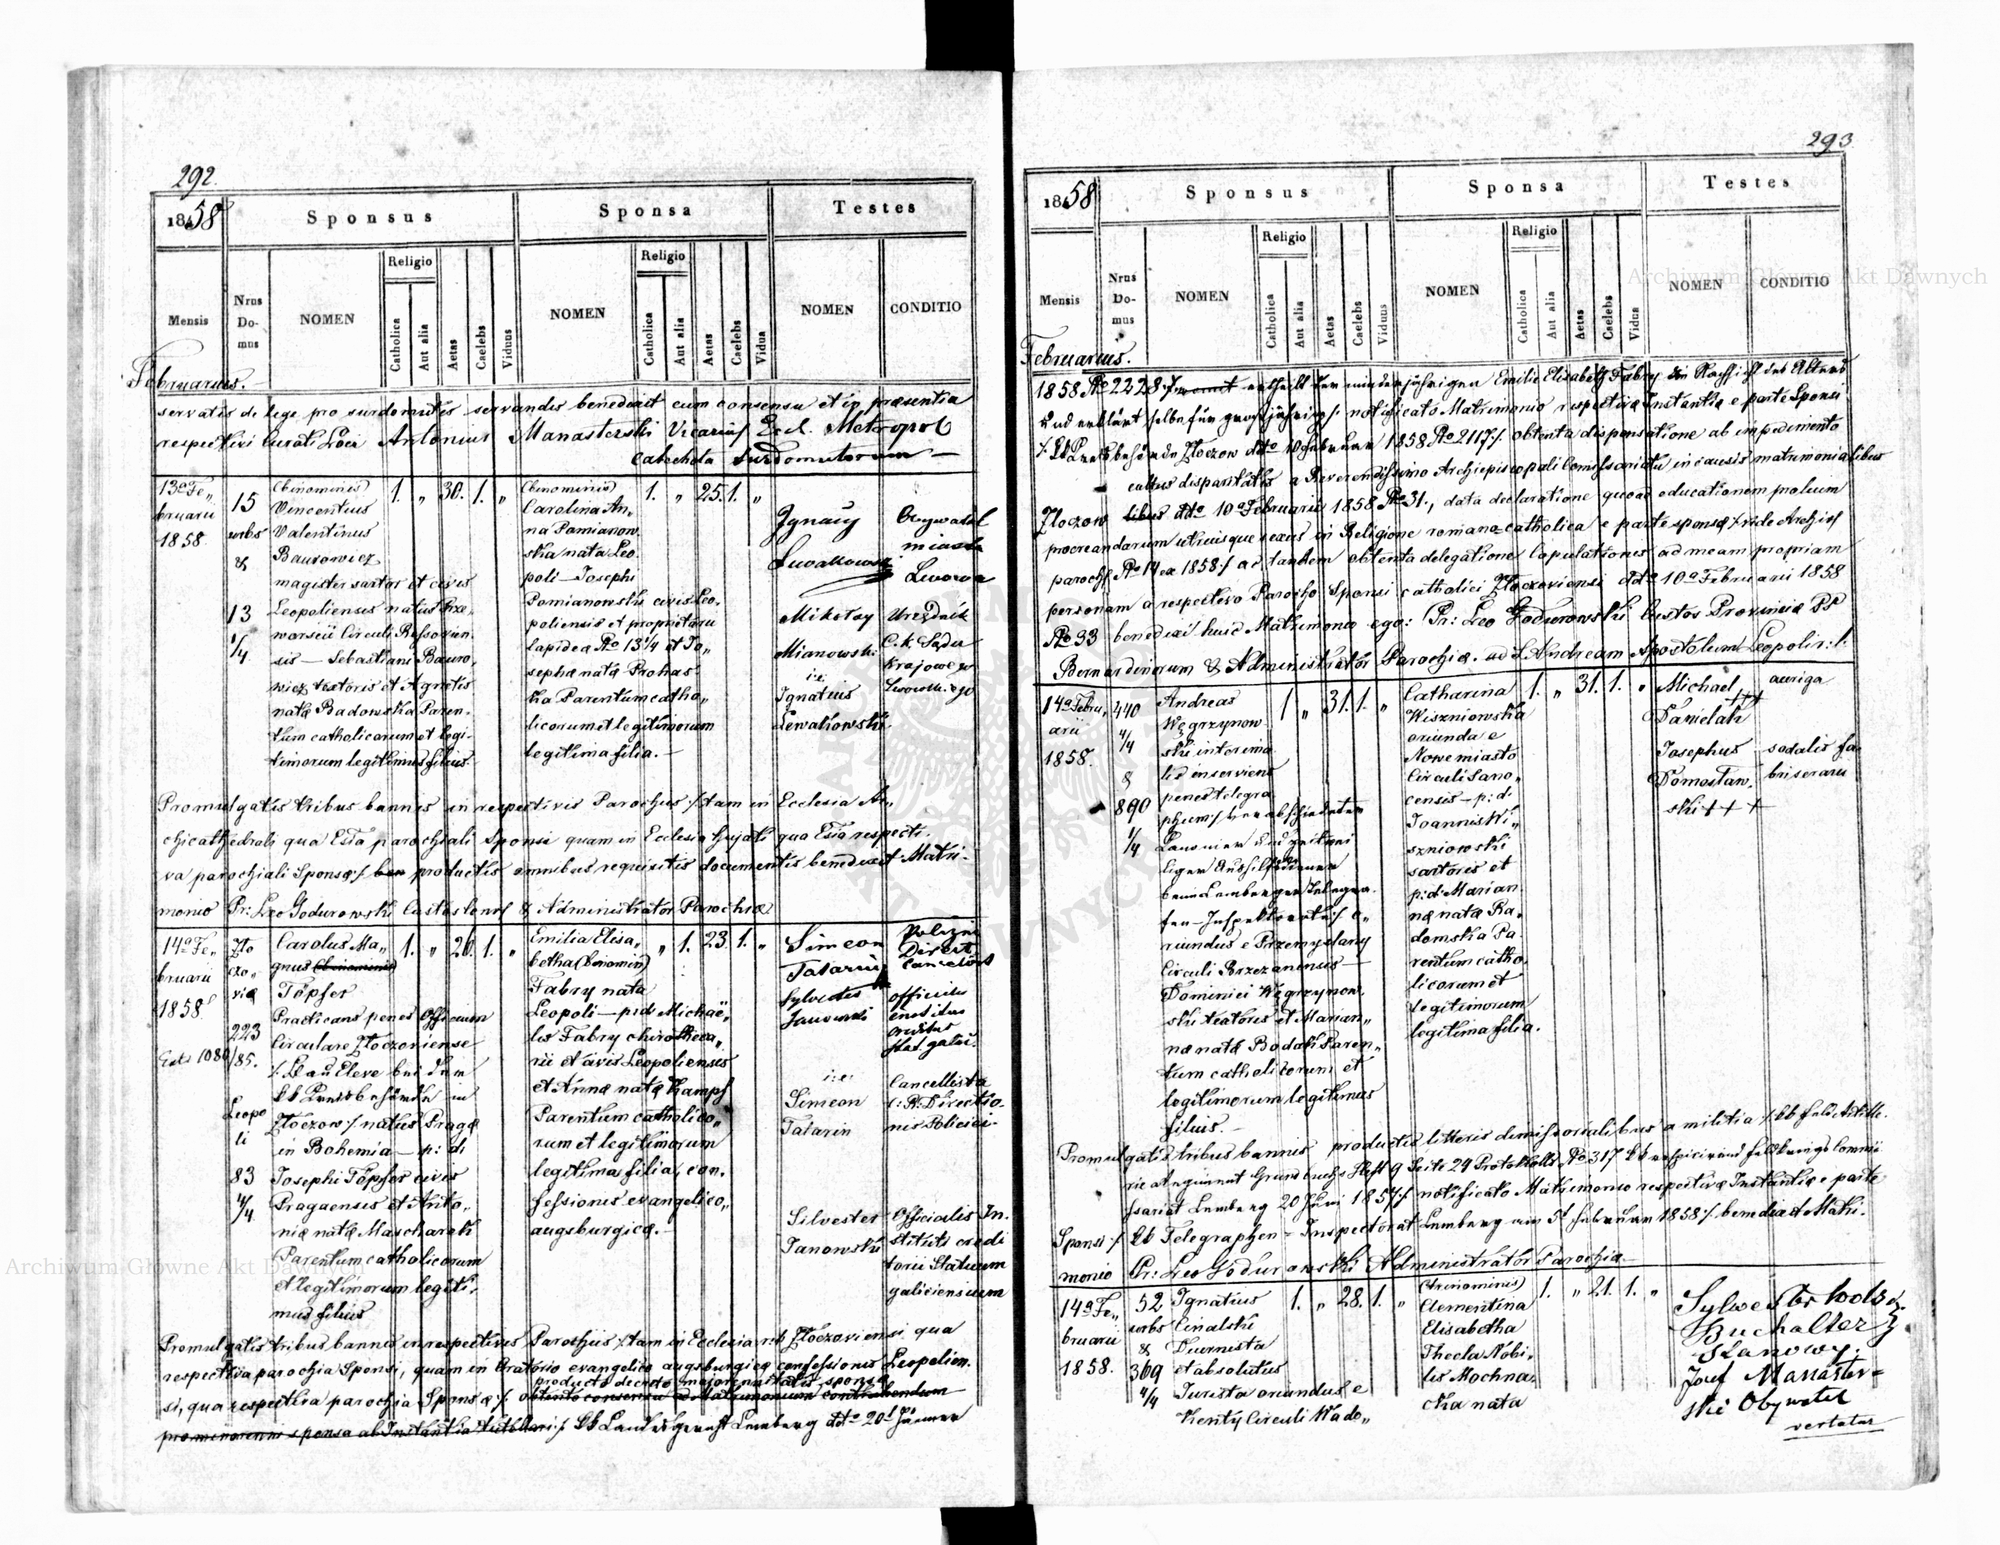 292.
1858
Sponsus
Sponsa
Testes
Mensis
Nrus Do- mus
NOMEN
Religio
Catholica
Aut alia
Aetas
Caelebs
Viduus
NOMEN
Religio
Catholica
Aut alia
Aetas
Caelebs
Vidua
NOMEN
CONDITIO
Februarius.
servatis de lege pro surdomutis servandis benedixit cum consensu et in praesentia
respectivi Curati Loci Antonius Manasterski Vicarius Eccl. Metropol
catecheta surdomutorum
13a Fe„
bruarii
1858.
15
urbs
&
13
1/4
(binominis)
Vincentius
Valentinus
Baurowicz
magister sartor et civis
Leopoliensis natus Prze„
worscii Circuli Rzeszovien„
sis — Sebastiani Bauro„
wicz textoris et Agnetis
nata Badowska Paren„
tum catholicorum et legi„
timorum legitimus filius
1. „ 30. 1. „
(binominis)
Carolina An„
na Pomianow„
ska nata Leo„
poli — Josephi
Pomianowski civis Leo„
poliensis et proprietarii
lapidea No 13 1/4 et Jo„
sepha nata Prohas„
ka Parentum catho„
licorum et legitimorum
legitima filia. —
1. „ 25. 1. „
Ignacy
Lewakowski
Obywatel
miasta
Lwowa
Mikołay
Mianowski
Urzędnik
C. k. Sądu
Krajowego
Lwowskiego
i:e:
Ignatius
Lewakowski
Promulgatis tribus bannis in respectivis Parochiis /: tam in Ecclesia Ar„
chicathedrali qua Esta parochiali Sponsi quam in Ecclesia hujati qua Esta respecti„
va parochiali Sponsa :/ productis omnibus requisitis documentis benedixit Matri„
monio Pr: Leo Godurowski Custos & Administrator Parochiae
14a Fe„
bruarii
1858
Zło
czo„
via
223
85.
Leopo
li
83
4/4
Carolus Ma„
gnus (binominis)
Töpfer
Practicans penes Officium
Circulare Złoczoviense
in
Złoczow :/ natus Praga
in Bohemia — p: d:
Josephi Töpfer civis
Pragaensis et Anto„
nia nata Mascharek
Parentum catholicorum
et legitimorum legiti„
mus filius
1. „ 26. 1. „
Emilia Elisa„
betha (binomin)
Fabry nata
Leopoli — p:d: Michaë„
lis Fabry chirotheca„
rii et civis Leopoliensis
et Anna nata Kampf
Parentum catholico„
rum et legitimorum
legitima filia, con„
fessionis evangelico„
augsburgica. —
„ 1. 23. 1. „
Simeon
Tatarin
Sylvester
Janowski
officialis
i:e:
Simeon
Tatarin
Cancellista
c: R: Directio„
nis Policiei
Silvester
Janowski
Officialis In„
stituti credi
torii Statuum
galiciensium
Promulgatis tribus bannis in respectivis Parochiis /: tam in Ecclesia Złoczoviensi qua
respectiva parochia Sponsi, quam in Oratorio evangelico augsburgica confessionis Leopolien„
producto decreto majorennitatis sponsa
si, qua respectiva parochia Sponsa :/ obtento consensu ad Matrimonium contrahendum
pro minorenni sponsa ab Instantia tutellari :/ kk Landesgericht Lemberg ddto 20 Jänner
293
1858
Sponsus
Sponsa
Testes
Mensis
Nrus Do- mus
NOMEN
Religio
Catholica
Aut alia
Aetas
Caelebs
Viduus
NOMEN
Religio
Catholica
Aut alia
Aetas
Caelebs
Vidua
NOMEN
CONDITIO
Februarius.
1858 No 2228 ertheilt der minderjährigen Emilie Elisabeth Fabry die Nachsicht des Alters
und erklärt selbe für grosjährig :/ notificato Matrimonio respectiva Instantia e parte Sponsi
/: kk Kreisbehörde Złoczow ddto 10 Februar 1858 No 2117 :/ obtenta dispensatione ab impedimento
cultus disparitatis a Reverendissimo Archiepiscopali Comissariatu in causis matrimonialibus
Złoczow ddto 10a Februarii 1858 No 31., data declaratione quoad educationem prolium
procreandarum utriusque sexus in Religione romano catholica e parte sponsa /: vide Archiv
paroch No 14 ex 1858 :/ ac tandem obtenta delegatione Copulationis ad meam propriam
personam a respectivo Parocho Sponsi catholici Złoczoviensi ddto 10a Februarii 1858
No 33 benedixi huic Matrimonio ego: Pr: Leo Godurowski Custos Provincia PP
Bernardinorum & Administrator Parochia ad S. Andream Apostolum Leopoli
14a Febru„
arii
1858.
440
4/4
&
890
1/4
Andreas
Węgrzynow„
ski interima„
lis inserviens
penes telegra„
phum /: verabschiedeter
beim Lemberger Telegra„
fen-Inspektorate :/ o„
riundus e Przemyslany
Circuli Brzezanensis —
Dominici Węgrzynow„
ski textoris et Marian„
na nata Bodak Paren„
tum catholicorum et
legitimorum legitimus
filius. —
1 „ 31. 1. „
Catharina
Wiszniowska
oriunda e
Nowemiasto
Circuli Sano„
censis — p: d:
Joannis Wi„
szniowski
sartoris et
p: d: Marian„
na nata Ra„
domska Pa„
rentum catho„
licorum et
legitimorum
legitima filia.
1. „ 31. 1. „
Michaël +++
Danielak
auriga
Josephus
Domostaw„
ski +++
sodalis fa„
briferarii
Promulgatis tribus bannis, productis litteris dimissorialibus a militia /: kk Feld-Artille„
rie Regiment Grundbuchs Heft 9 Seite 24 Protokolls No 317
Lemberg 20 Juni 1857 :/ notificato Matrimonio respectiva Instantia e parte
Sponsi /: kk Telegraphen-Inspectorat Lemberg am 5 Februar 1858 :/ benedixit Matri„
monio Pr: Leo Godurowski Administrator Parochia —
14a Fe„
bruarii
1858.
52
urbs
&
369
4/4
Ignatius
Cinalski
Diurnista
et absolutus
Jurista oriundus e
Kenty Circuli Wado„
1. „ 28. 1. „
(trinominis)
Clementina
Elisabetha
Thecla Nobi„
lis Mochna„
cka nata
1. „ 21. 1. „
Buchalter
Stanowy.
Josef Manaster„
ski Obywatel
vertatur
Archiwum Główne Akt Dawnych
Archiwum Główne Akt Dawnych